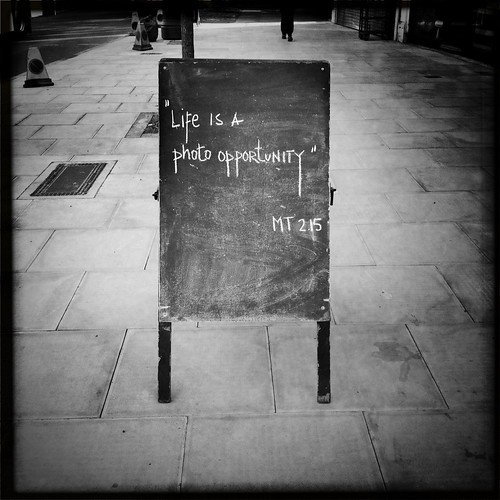 "Life is A
photo opportunity"
MT 2.15